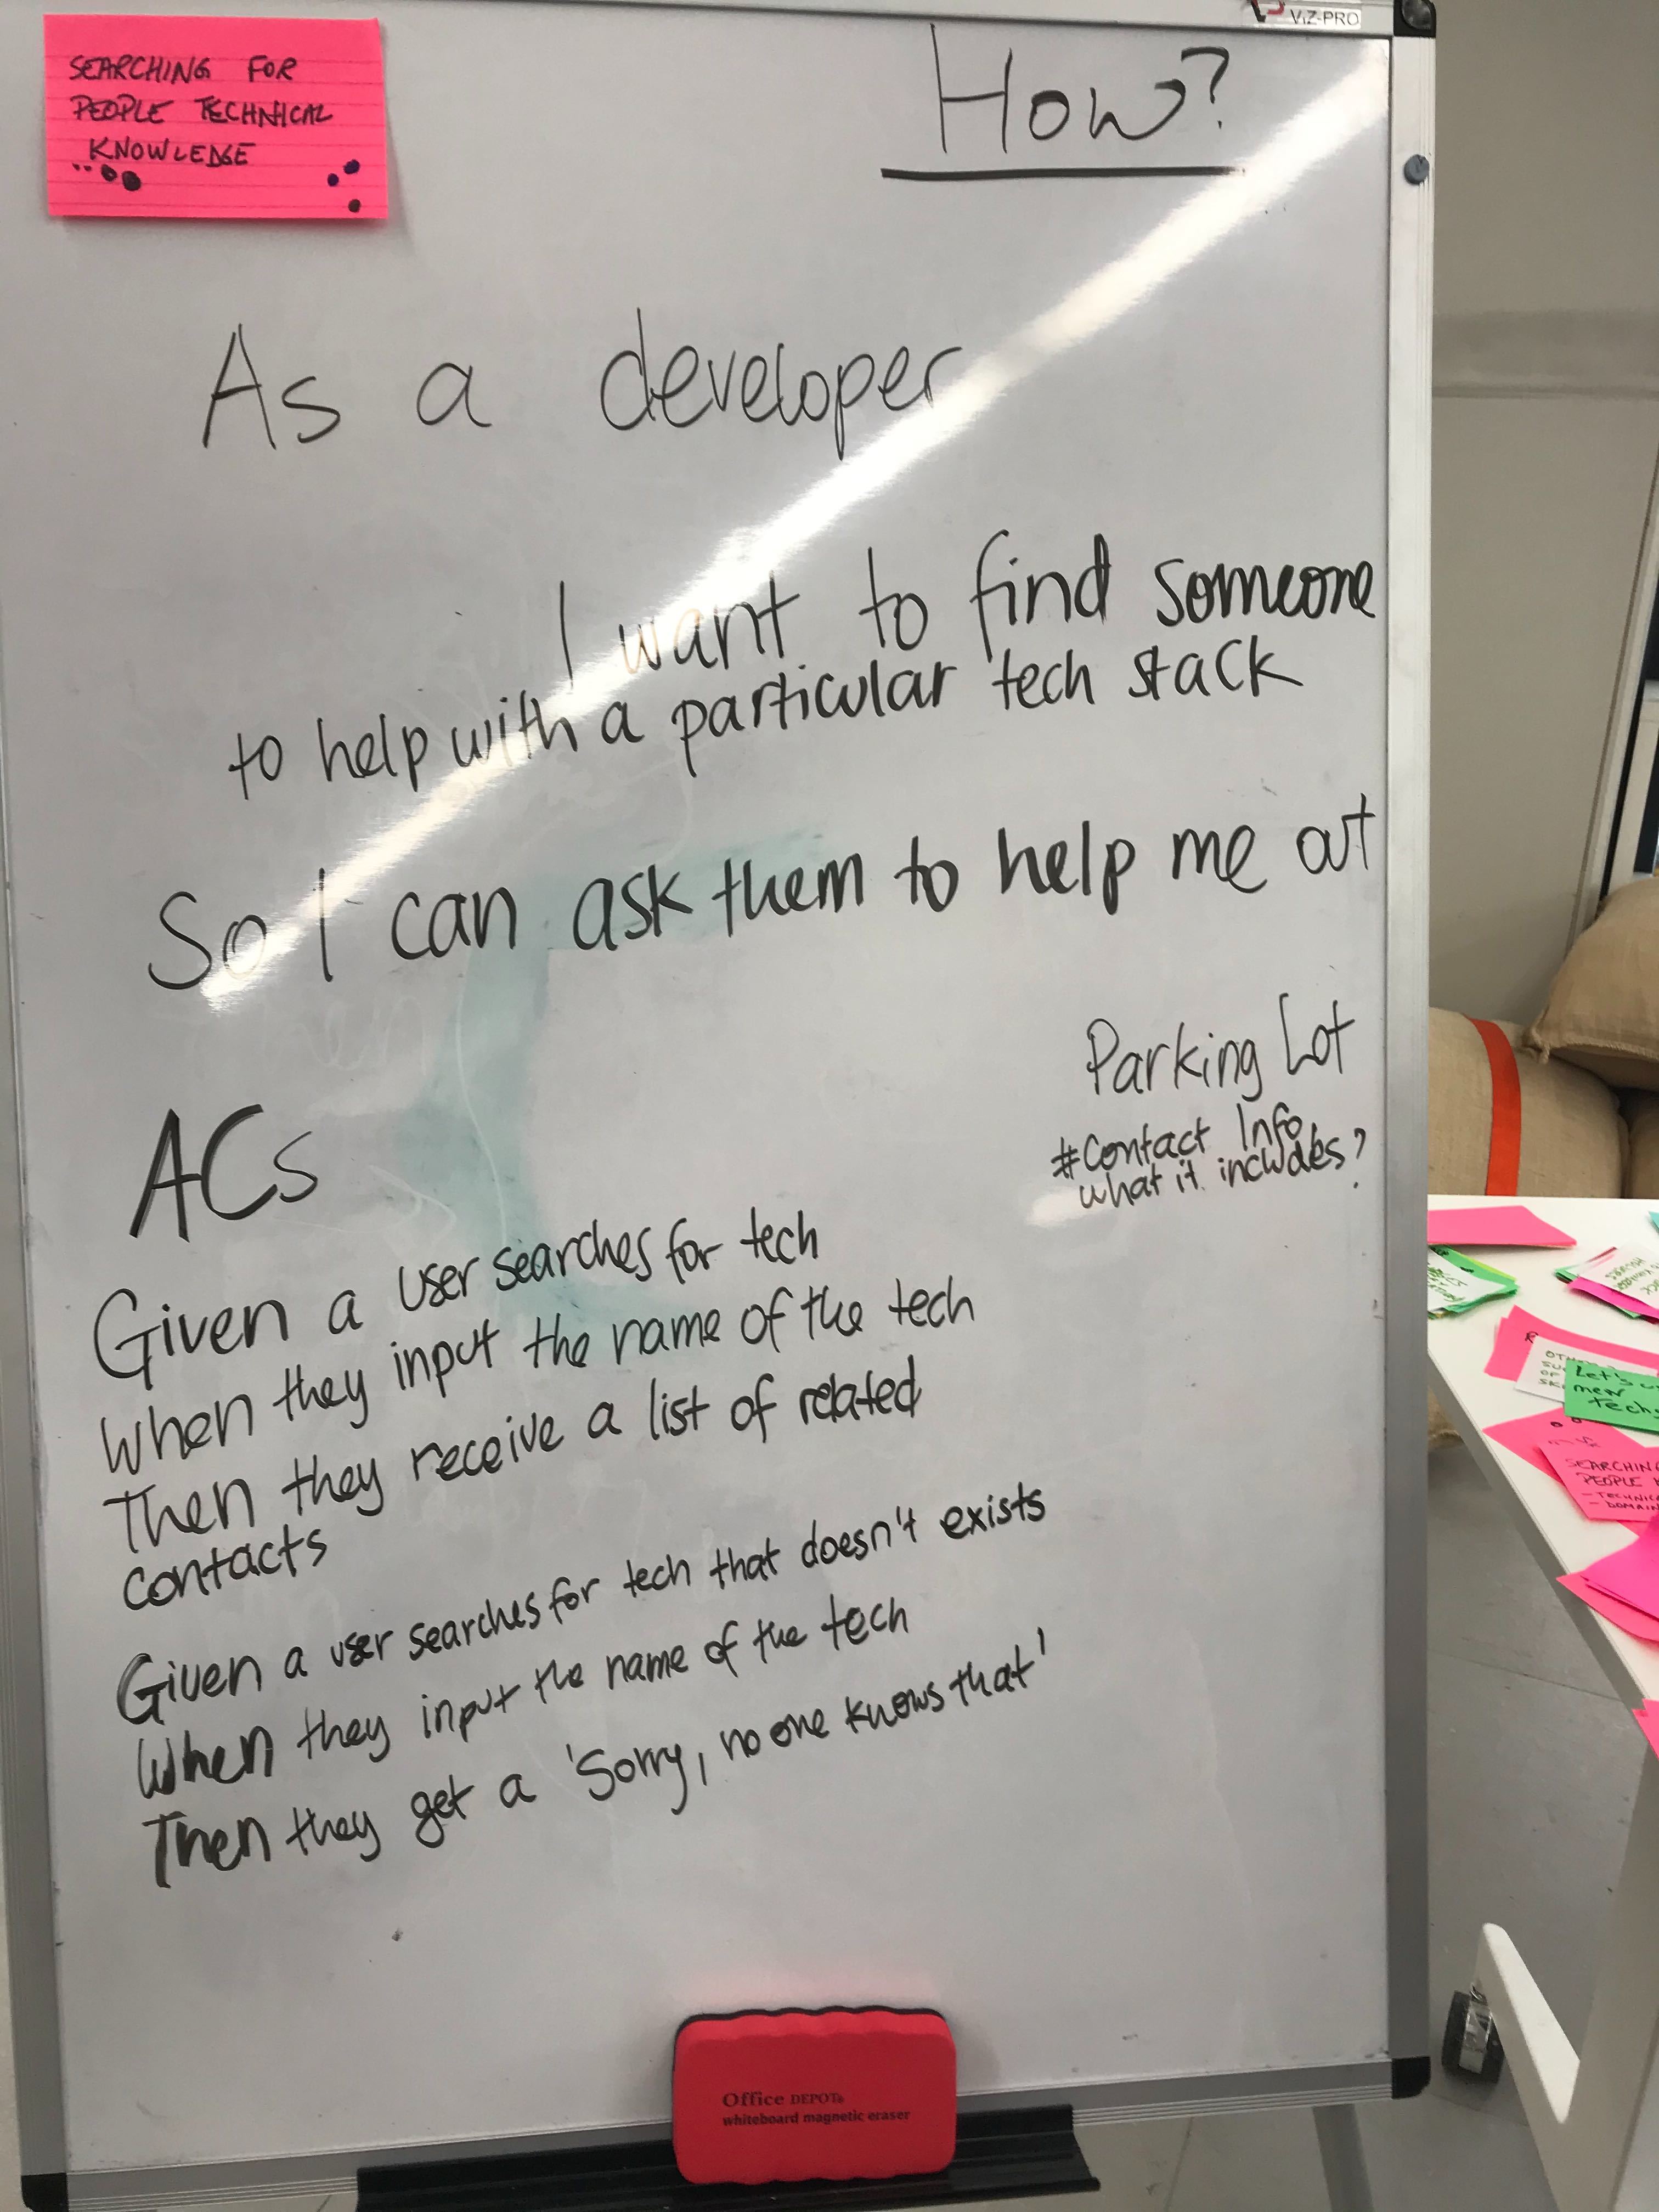 VIZ-PRO
SEARCHING FOR
PEOPLE TECHNICAL
KNOWLEDGE
How?
As a developer
I want to find someone
to help with a particular tech stack
So I can ask them to help me out
Parking Lot
#Contact Info
what it includes?
ACs
Given a user searches for tech
When they input the name of the tech
Then they receive a list of related
contacts
Given a user searches for tech that doesn't exists
When they input the name of the tech
Then they get a 'Sorry, no one knows that'
Let's
tech
SEARCHING
PEOPLE
Office DEPOT
whiteboard magnetic eraser